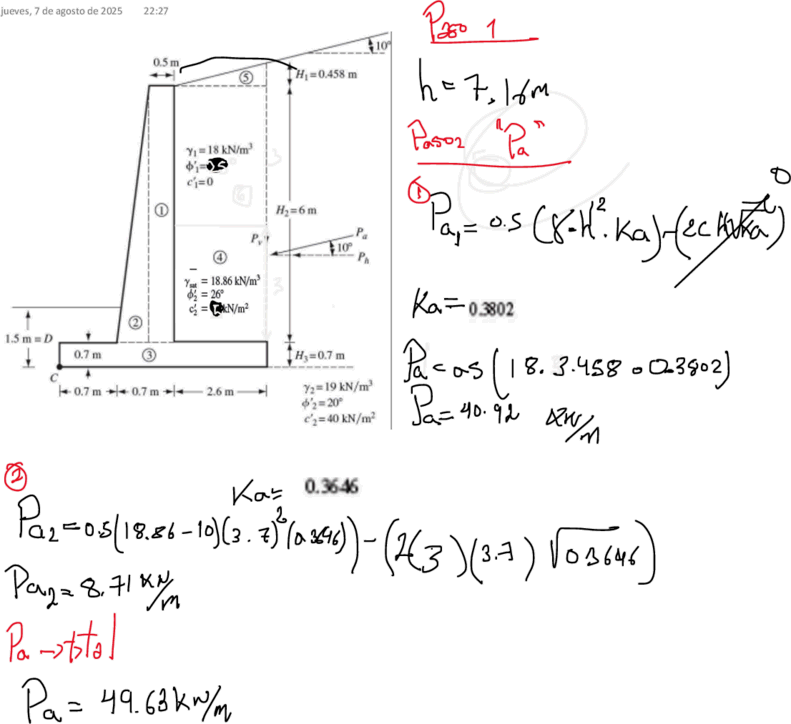 jueves, 7 de agosto de 2025 22:27
0.5 m
10°
⑤
H₁=0.458 m
γ₁=18 kN/m³
ϕ′₁=
c′₁=0
①
H₂=6 m
Pₐ
Pᵥ
10°
Pₕ
④
γsat = 18.86 kN/m³
ϕ′₂ = 26°
c′₂ = kN/m²
②
1.5 m=D
0.7 m
③
H₃=0.7 m
C
0.7 m
0.7 m
2.6 m
γ₂=19 kN/m³
ϕ′₂=20°
c′₂=40 kN/m²
Paso 1
h=7,16m
Paso2 "Pa"
①
Pa₁= 0.5 (γ·H²·Ka)-(2cH√Ka) 0
Ka= 0.3802
Pa=0.5(18.3.458·0.3802)
Pa=40.92 kN/m
②
Ka= 0.3646
Pa2=0.5(18.86-10)(3.7)²(0.3646))-(2(3)(3.7)√0.3646)
Pa₂=8.71 kN/m
Pa→total
Pa= 49.63kN/m